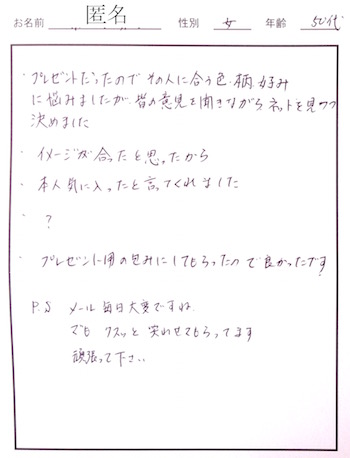 お名前 匿名 性別 女 年齢 50代
・プレゼントだったので その人に合う色.柄.好み
に悩みましたが、皆の意見を聞きながら ネットを見つつ
決めました
・イメージが合ったと思ったから
・本人気に入ったと言ってくれました
・?
・プレゼント用の包みにしてもらったので良かったです!
P.S メール毎日大変ですね.
でも クスッと笑わせてもらってます
頑張って下さい